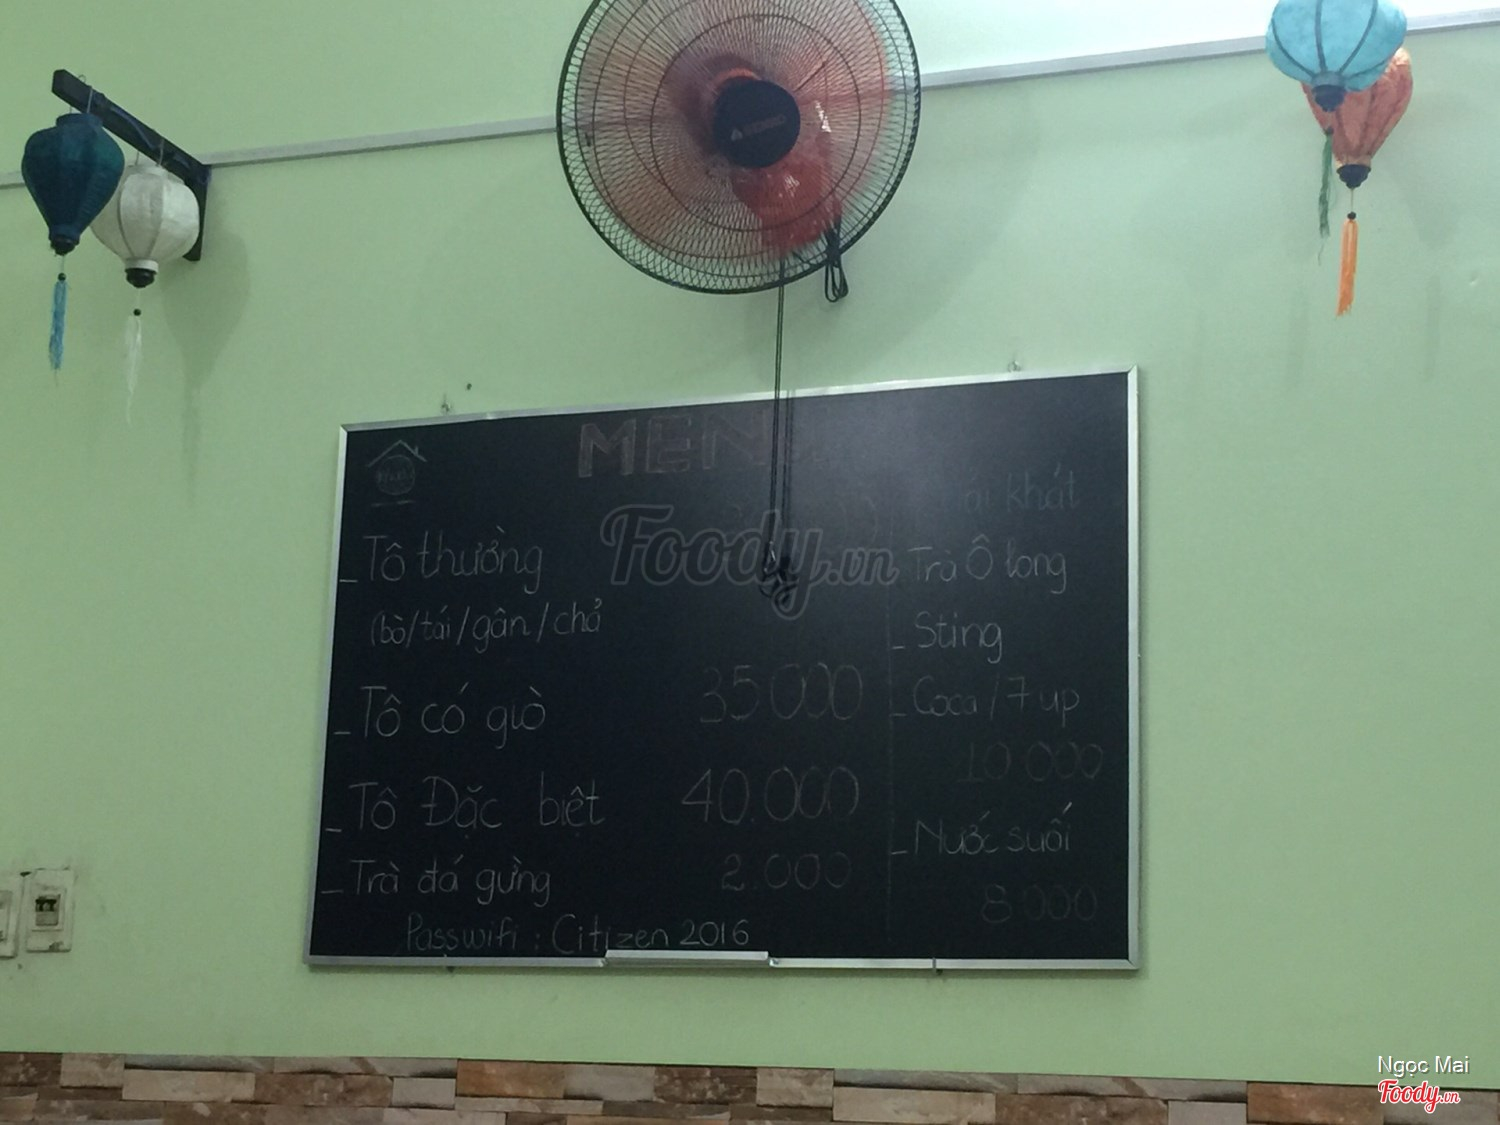 MEN
Tô thường
(bò/tái/gân/chả
Tô có giò 35000
Tô Đặc biệt 40.000
Trà đá gừng 2.000
Passwifi : Citizen 2016
khát
Trà Ô long
Sting
Coca / 7 up
10 000
Nước suối
8 000
Foody.vn
Ngọc Mai
Foody.vn